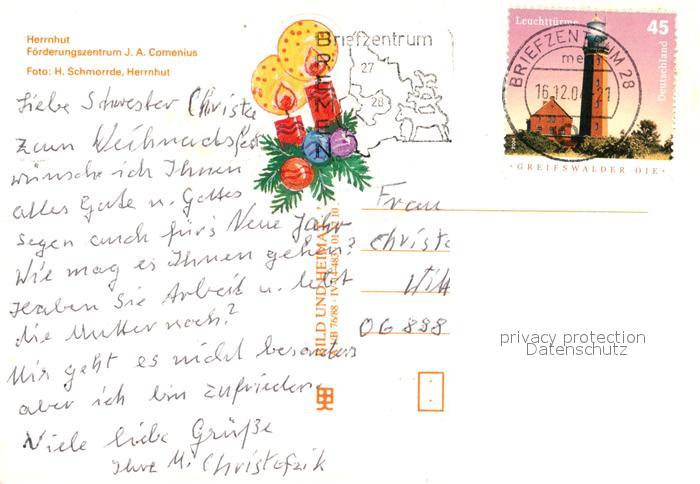 Herrnhut
Förderungszentrum J. A. Comenius
Foto: H. Schmorrde, Herrnhut
Liebe Schwester Christa
zum Weihnachtsfest
wünsche ich Ihnen
alles Gute u. Gottes
Segen auch für's Neue Jahr
Wie mag es Ihnen gehen?
Haben Sie Arbeit u. lebt
die Mutter noch?
Mir geht es nicht besonders
aber ich bin zufrieden
Viele liebe Grüße
Ihre M. Christofzik
Briefzentrum
BREMEN
27
28
BILD UND HEIMAT
Leuchttürme
45
Deutschland
GREIFSWALDER OIE
BRIEFZENTRUM 28
16.12.04
Frau
Christ
OG 888
privacy protection
Datenschutz